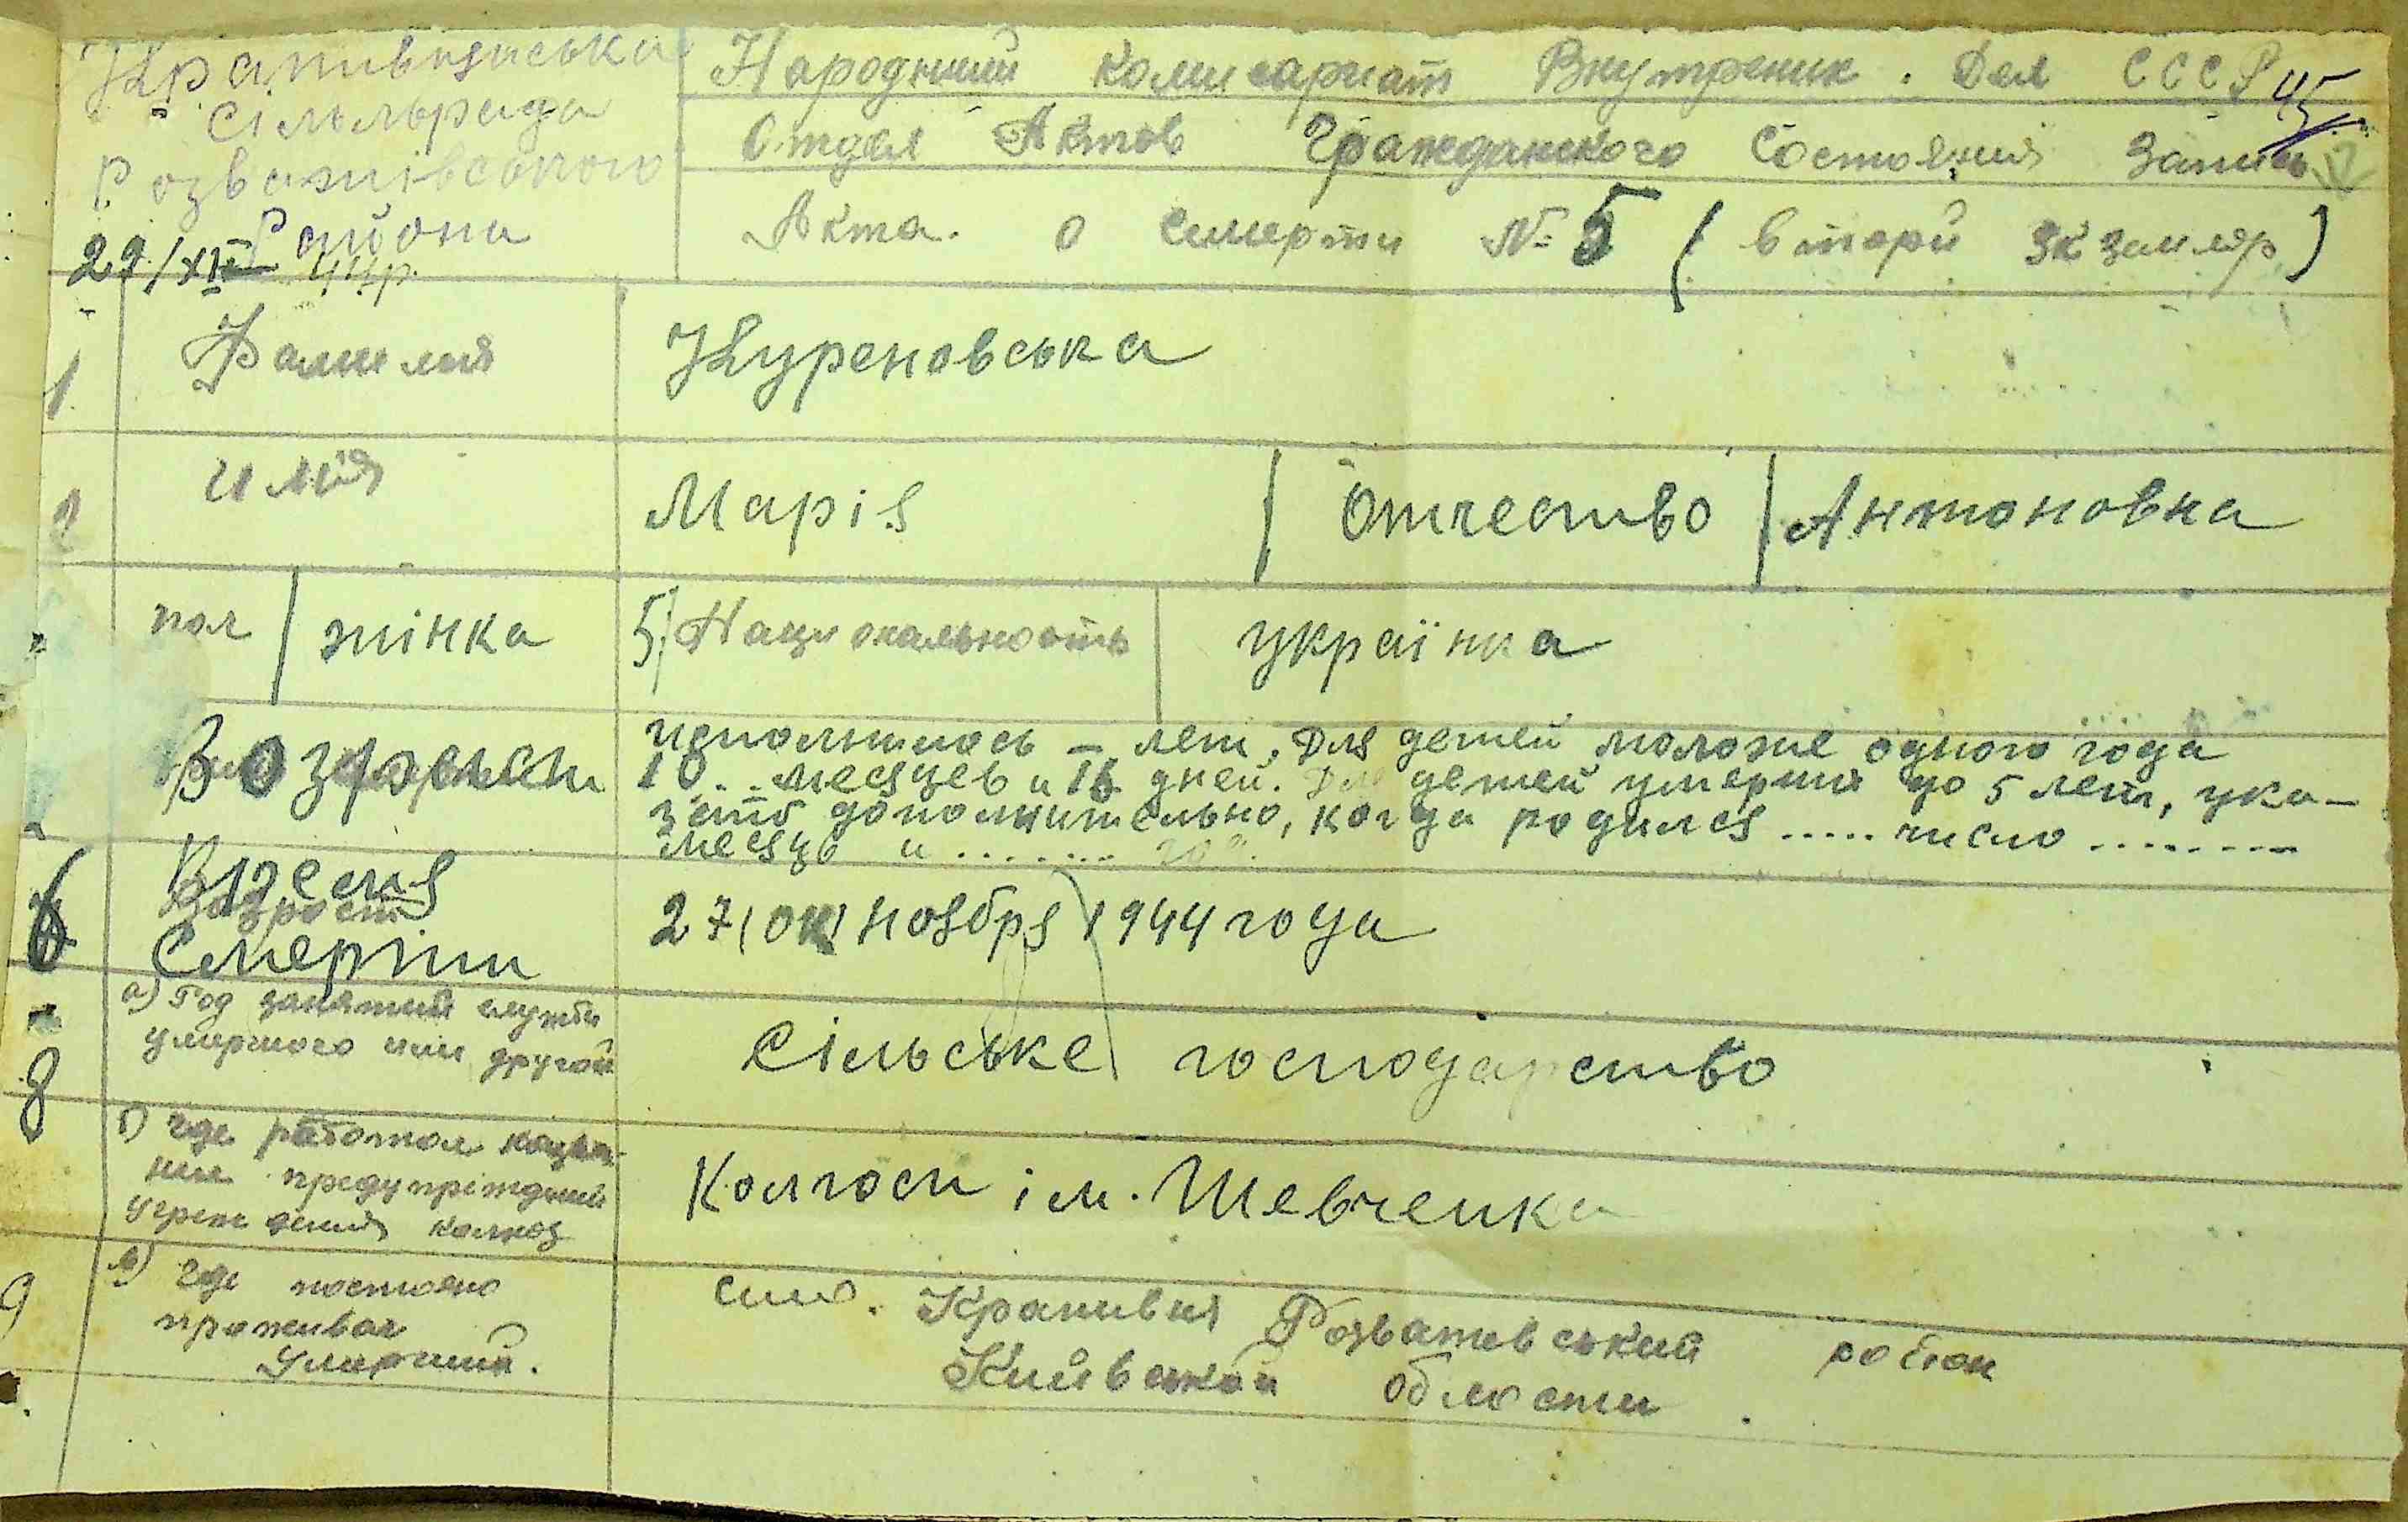 Крапивнянська
Сільльрада
Розважівсокого
Района
29/XI 44р.
Народний Комисариат Внутреник. Дел СССР 45
Отдел Актов Гражданского Состояния Запись
Акта. о Смерти № 5 (вторий экземляр)
1. Фамилия Куреновська
2 имия Марія Отчество Антоновка
пол жінка 5) Национальность українка
Возраст исполнилось – лет, Для детей моложе одного года
10 .. месяцев и 16 дней. Для детей умерши до 5 лет, ука-
зать дополнительно, когда родился ..... число ........
месяць и ........
6 Время Смерти 27/ ноября 1944 года
8 а) Год занятий службы
умершого или другой Сільське господарство
б) где работал назва-
ние предупріждний
учреждения колхоз Колгосп ім. Шевченка
9 в) где постояно
проживал
Умерший. село. Крапивня Розважевський район
Київской области.